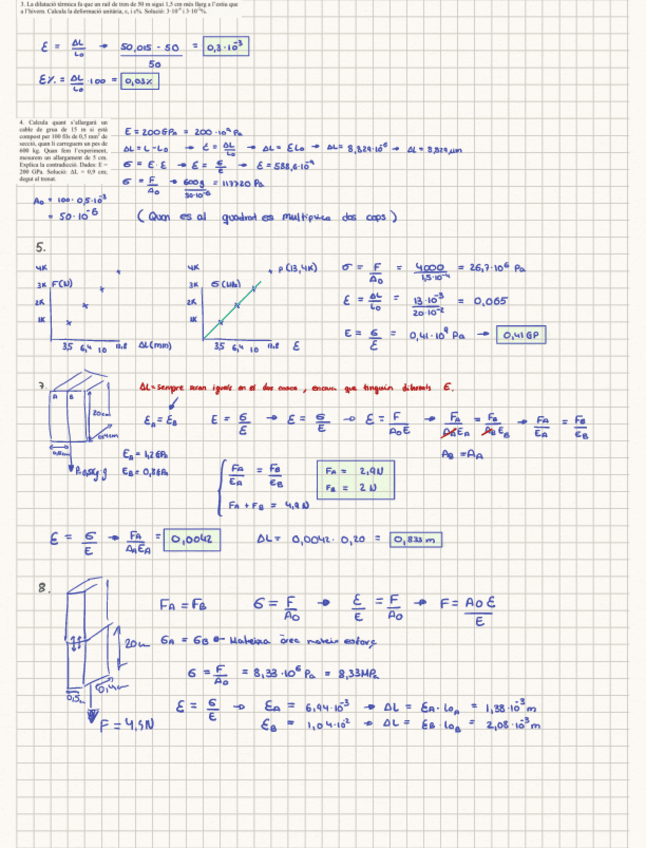 3. La dilatació tèrmica fa que un rail de tren de 50 m sigui 1,5 cm més llarg a l'estiu que
a l'hivern. Calcula la deformació unitària, ε, i ε%. Solució: 3·10⁻⁴ i 3·10⁻²%.
ε = ΔL/L₀ → (50,015 - 50)/50 = 0,3·10⁻³
ε% = ΔL/L₀ · 100 = 0,03%
4. Calcula quant s'allargarà un
cable de grua de 15 m si està
compost per 100 fils de 0,5 mm² de
secció, quan li carreguem un pes de
600 kg. Quan fem l'experiment,
mesurem un allargament de 5 cm.
Explica la contradicció. Dades: E =
200 GPa. Solució: ΔL = 0,9 cm,
degut al trenat.
E = 200 GPa = 200·10⁹ Pa
ΔL = L - L₀ → ε = ΔL/L₀ → ΔL = ε L₀ → ΔL = 8,829·10⁻⁶ → ΔL = 8,829 μm
σ = E·ε → ε = σ/E → ε = 588,6·10⁻⁹
σ = F/A₀ → 600g/50·10⁻⁶ = 117720 Pa
A₀ = 100·0,5·10⁻³
= 50·10⁻⁶
( Quan es al quadrat es multiplica dos cops )
5.
4K
3K F(N)
2K
1K
3,5 6,4 10 ΔL(mm)
4K
3K σ(MPa)
2K
1K
3,5 6,4 10 ε
P(13,4K)
σ = F/A₀ = 4000/1,5·10⁻⁴ = 26,7·10⁶ Pa
ε = ΔL/L₀ = 13·10⁻³/20·10⁻² = 0,065
E = σ/ε = 0,41·10⁹ Pa → 0,41 GP
7.
ΔL = sempre seran iguals en el dos casos, encara que tinguin diferents E.
A B
20cm
0,4cm
ε_A = ε_B
E = σ/ε → ε = σ/E → ε = F/A₀E → F_A/A_AE_A = F_B/A_BE_B → F_A/E_A = F_B/E_B
A_B = A_A
E_A = 1,2 GPa
E_B = 0,8 GPa
F_A/E_A = F_B/E_B
F_A + F_B = 4,9 N
F_A = 2,9 N
F_B = 2 N
ε = σ/E → F_A/A_AE_A = 0,0042
ΔL = 0,0042 · 0,20 = 0,833 m
8.
F_A = F_B
σ = F/A₀ → ε/E = F/A₀ → F = A₀ε/E
20cm
σ_A = σ_B ← Mateixa àrea mateix esforç
σ = F/A₀ = 8,33·10⁶ Pa = 8,33 MPa
0,4cm
ε = σ/E → ε_A = 6,94·10⁻³ → ΔL = ε_A·L₀_A = 1,38·10⁻³ m
ε_B = 1,04·10⁻² → ΔL = ε_B·L₀_B = 2,08·10⁻³ m
F = 4,9N